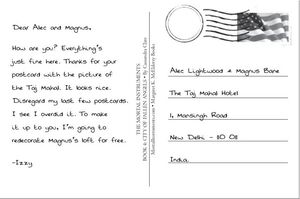 Dear Alec and Magnus,
How are you? Everything's
just fine here. Thanks for your
postcard with the picture of
the Taj Mahal. It looks nice.
Disregard my last few postcards.
I see I overdid it. To make
it up to you, I'm going to
redecorate Magnus's loft for free.
-Izzy
THE MORTAL INSTRUMENTS
BOOK 4: CITY OF FALLEN ANGELS • By Cassandra Clare
MortalInstruments.com • Margaret K. McElderry Books
Alec Lightwood & Magnus Bane
The Taj Mahal Hotel
1, Mansingh Road
New Delhi - 110 011
India